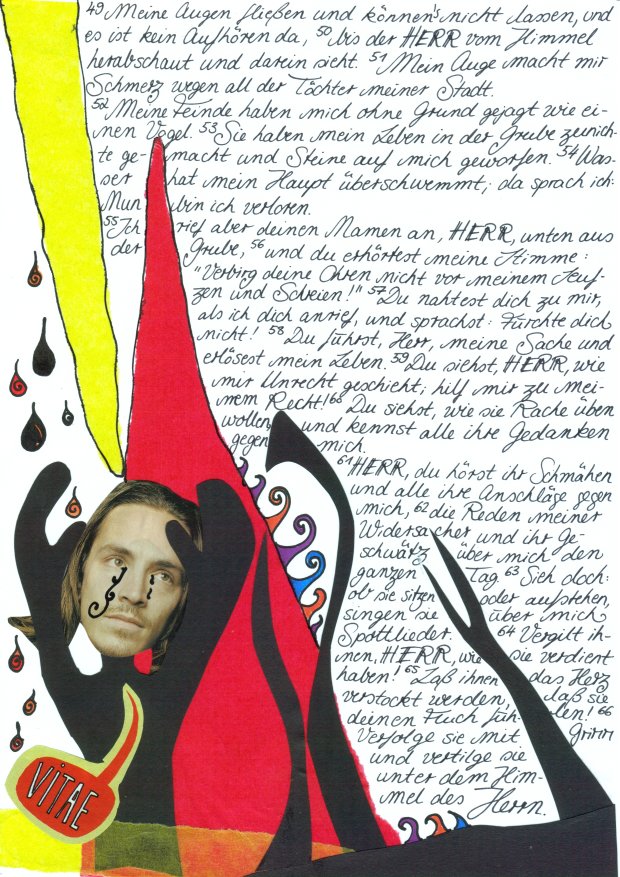 49 Meine Augen fließen und können's nicht lassen, und
es ist kein Aufhören da, 50 bis der HERR vom Himmel
herabschaut und darein sieht. 51 Mein Auge macht mir
Schmerz wegen all der Töchter meiner Stadt.
52 Meine Feinde haben mich ohne Grund gejagt wie ei-
nen Vogel. 53 Sie haben mein Leben in der Grube zunich-
te ge- macht und Steine auf mich geworfen. 54 Was-
ser hat mein Haupt überschwemmt; da sprach ich:
Nun bin ich verloren.
55 Ich rief aber deinen Namen an, HERR, unten aus
der Grube, 56 und du erhörtest meine Stimme:
"Verbirg deine Ohren nicht vor meinem Seuf-
zen und Schreien!" 57 Du nahtest dich zu mir,
als ich dich anrief, und sprachst: Fürchte dich
nicht! 58 Du führst, Herr, meine Sache und
erlösest mein Leben. 59 Du siehst, HERR, wie
mir Unrecht geschieht; hilf mir zu mei-
nem Recht! 60 Du siehst, wie sie Rache üben
wollen, und kennst alle ihre Gedanken
gegen mich.
61 HERR, du hörst ihr Schmähen
und alle ihre Anschläge gegen
mich, 62 die Reden meiner
Widersacher und ihr Ge-
schwätz über mich den
ganzen Tag. 63 Sieh doch:
ob sie sitzen oder aufstehen,
singen sie über mich
Spottlieder. 64 Vergilt ih-
nen, HERR, wie sie verdient
haben! 65 Laß ihnen das Herz
verstockt werden, laß sie
deinen Fluch füh- len! 66
Verfolge sie mit Grimm
und vertilge sie
unter dem Him-
mel des Herrn.
VITAE